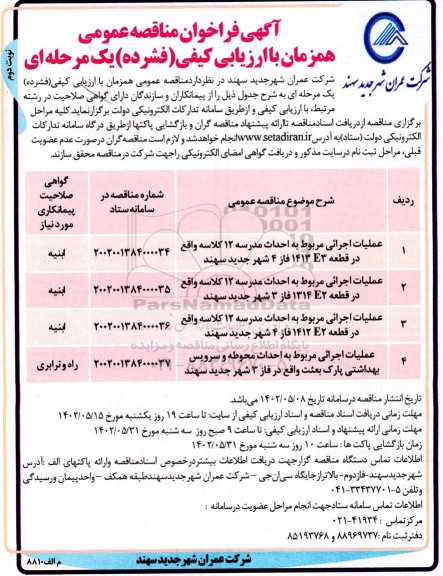 آگهی فراخوان مناقصه عمومی
همزمان با ارزیابی کیفی (فشرده) یک مرحله ای
نوبت دوم
شرکت عمران شهر جدید سهند
شرکت عمران شهرجدید سهند در نظرداردمناقصه عمومی همزمان با ارزیابی کیفی(فشرده)
یک مرحله ای به شرح جدول ذیل را از پیمانکاران و سازندگان دارای گواهی صلاحیت در رشته
مرتبط، با ارزیابی کیفی و ازطریق سامانه تدارکات الکترونیکی دولت برگزارنماید.کلیه مراحل
برگزاری مناقصه ازدریافت اسنادمناقصه تاارائه پیشنهاد مناقصه گران و بازگشایی پاکتها ازطریق درگاه سامانه تدارکات
الکترونیکی دولت (ستاد)به آدرسwww.setadiran.irانجام خواهدشد و لازم است مناقصه‌گران درصورت عدم عضویت
قبلی، مراحل ثبت نام درسایت مذکور و دریافت گواهی امضای الکترونیکی راجهت شرکت درمناقصه محقق سازند.
ردیف
شرح موضوع مناقصه عمومی
شماره مناقصه در سامانه ستاد
گواهی صلاحیت پیمانکاری مورد نیاز
۱
عملیات اجرائی مربوط به احداث مدرسه ۱۲ کلاسه واقع
در قطعه E۳ ۱۴۱۳ فاز ۴ شهر جدید سهند
۲۰۰۲۰۰۱۳۸۴۰۰۰۰۳۴
ابنیه
۲
عملیات اجرائی مربوط به احداث مدرسه ۱۲ کلاسه واقع
در قطعه E۲ ۱۳۱۴ فاز ۳ شهر جدید سهند
۲۰۰۲۰۰۱۳۸۴۰۰۰۰۳۵
ابنیه
۳
عملیات اجرائی مربوط به احداث مدرسه ۱۲ کلاسه واقع
در قطعه E۲ ۱۴۱۲ فاز ۴ شهر جدید سهند
۲۰۰۲۰۰۱۳۸۴۰۰۰۰۳۶
ابنیه
۴
عملیات اجرائی مربوط به احداث محوطه و سرویس
بهداشتی پارک بعثت واقع در فاز ۳ شهر جدید سهند
۲۰۰۲۰۰۱۳۸۴۰۰۰۰۳۷
راه و ترابری
ParsNamadData
پایگاه اطلاع رسانی مناقصه و مزایده
تاریخ انتشار مناقصه درسامانه تاریخ ۱۴۰۲/۰۵/۰۸ می‌باشد.
مهلت زمانی دریافت اسناد مناقصه و اسناد ارزیابی کیفی از سایت: تا ساعت ۱۹ روز یکشنبه مورخ ۱۴۰۲/۰۵/۱۵
مهلت زمانی ارائه پیشنهاد و اسناد ارزیابی کیفی: تا ساعت ۹ صبح روز سه شنبه مورخ ۱۴۰۲/۰۵/۳۱
زمان بازگشایی پاکت ها : ساعت ۱۰ روز سه شنبه مورخ ۱۴۰۲/۰۵/۳۱
اطلاعات تماس دستگاه مناقصه گزارجهت دریافت اطلاعات بیشتردرخصوص اسنادمناقصه وارائه پاکتهای الف :آدرس
شهرجدیدسهند-فازدوم-بالاترازجایگاه سی‌ان‌جی – شرکت عمران شهرجدیدسهندطبقه همکف – واحدپیمان ورسیدگی
وتلفن ۵-۳۳۴۳۷۷۰۱-۰۴۱
اطلاعات تماس سامانه ستادجهت انجام مراحل عضویت درسامانه :
مرکز تماس : ۴۱۹۳۴-۰۲۱
دفتر ثبت نام :۸۸۹۶۹۷۳۷ و ۸۵۱۹۳۷۶۸
شرکت عمران شهرجدید سهند
م الف ۸۸۱۰